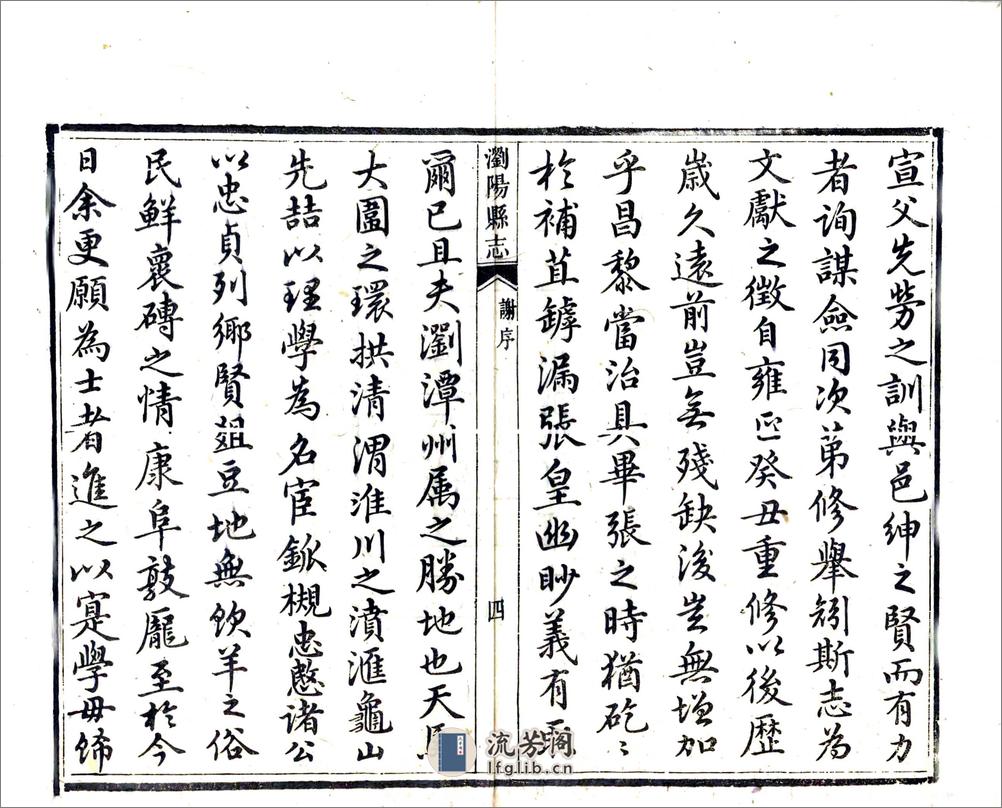 宣父先勞之訓與邑紳之賢而有力
者詢謀僉同次第修舉矧斯志為
文獻之徵自雍正癸丑重修以後歷
歲久遠前豈無殘缺後豈無增加
乎昌黎當治具畢張之時猶矻〻
於補苴罅漏張皇幽眇義有
瀏陽縣志
謝序
四
爾已且夫瀏潭州属之勝地也天馬
大圍之環拱清渭淮川之濆滙龜山
先喆以理學為名宦歙槻忠愍諸公
以忠貞列鄉賢俎豆地無飲羊之俗
民鮮裏磚之情康阜敦龐至於今
日余更願為士者進之以寔學毋飾
流芳阁
lfglib.cn